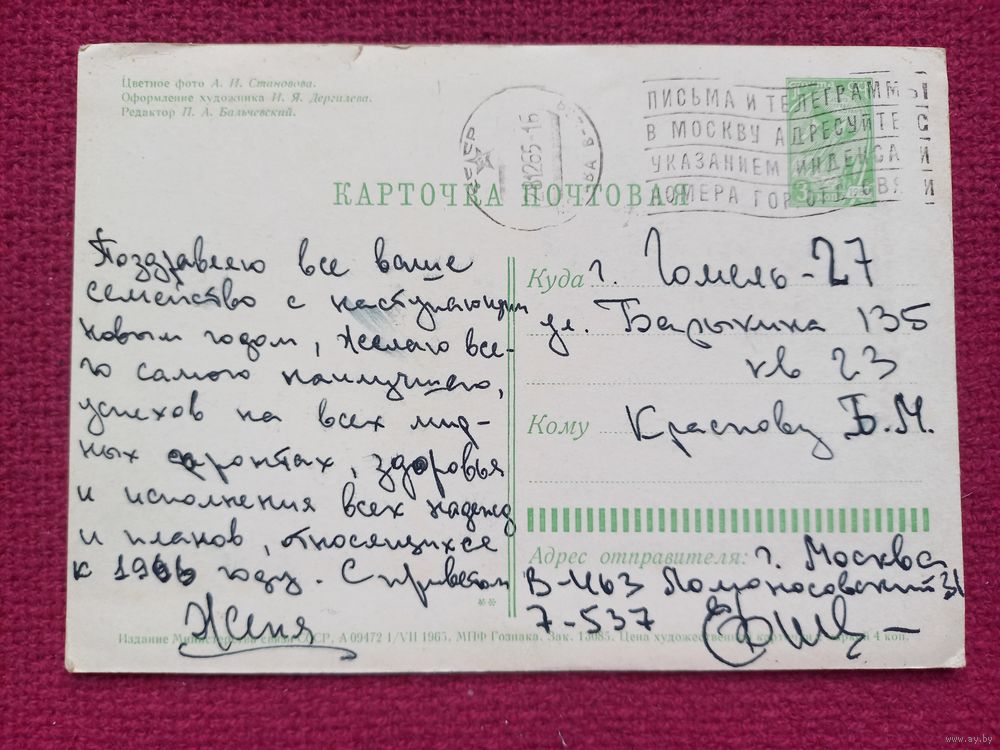 Цветное фото А. И. Становова.
Оформление художника И. Я. Дергилева.
Редактор П. А. Бальчевский.
СССР
281265-16
ПИСЬМА И ТЕЛЕГРАММЫ
В МОСКВУ АДРЕСУЙТЕ С
УКАЗАНИЕМ ИНДЕКСА И
НОМЕРА ГОР ОТД СВЯ И
КАРТОЧКА ПОЧТОВАЯ
Поздравляю все ваше
семейство с наступающим
новым годом, желаю все-
го самого наилучшего,
успехов на всех мир-
ных фронтах, здоровья
и исполнения всех надежд
и планов, относящихся
к 1966 году. С приветом
Женя
Куда г. Гомель-27
ул. Барыкина 135
кв 23
Кому Краснову Б.М.
Адрес отправителя: г. Москва
В-463 Ломоносовский 31
7-537
Издание Министерства связи СССР, А 09472 1/VII 1965. МПФ Гознака. Зак. 13085. Цена художественной карточки с маркой 4 коп.
www.ay.by